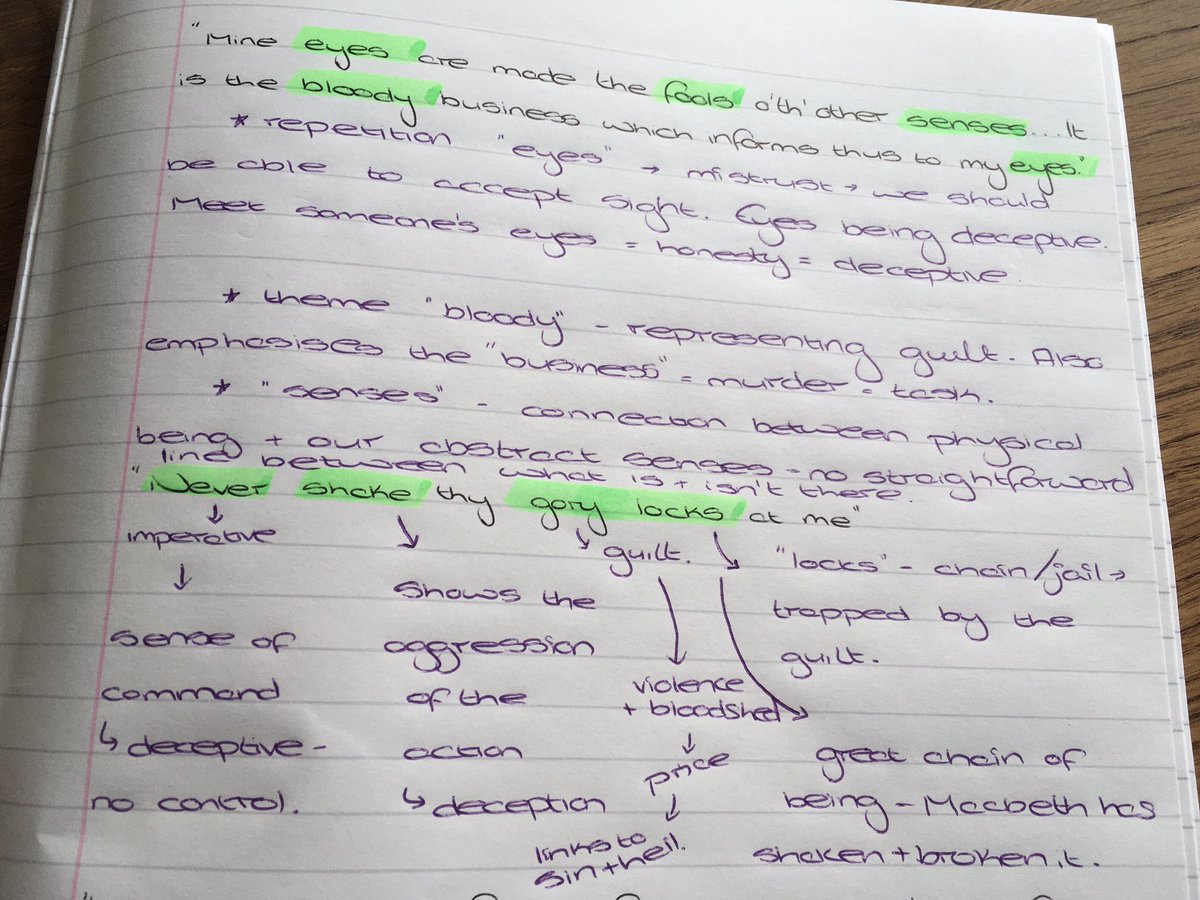 "Mine eyes are made the fools o'th' other senses....It
is the bloody business which informs thus to my eyes."
* repetition "eyes" → mistrust → we should
be able to accept sight. Eyes being deceptive.
Meet someone's eyes = honesty = deceptive.
* theme "bloody" - representing guilt. Also
emphasises the "business" = murder = task.
* "senses" - connection between physical
being + our abstract senses - no straightforward
line between what is + isn't there.
"Never shake thy gory locks at me"
↓
imperative
↓
sense of
command
↳ deceptive -
no control.
↘
shows the
aggression
of the
action
↳ deception
↘ guilt.
↓
violence
+ bloodshed
↓
price
↓
links to
sin + hell.
↘ "locks" - chain/jail →
trapped by the
guilt.
↘
great chain of
being - Macbeth has
shaken + broken it.